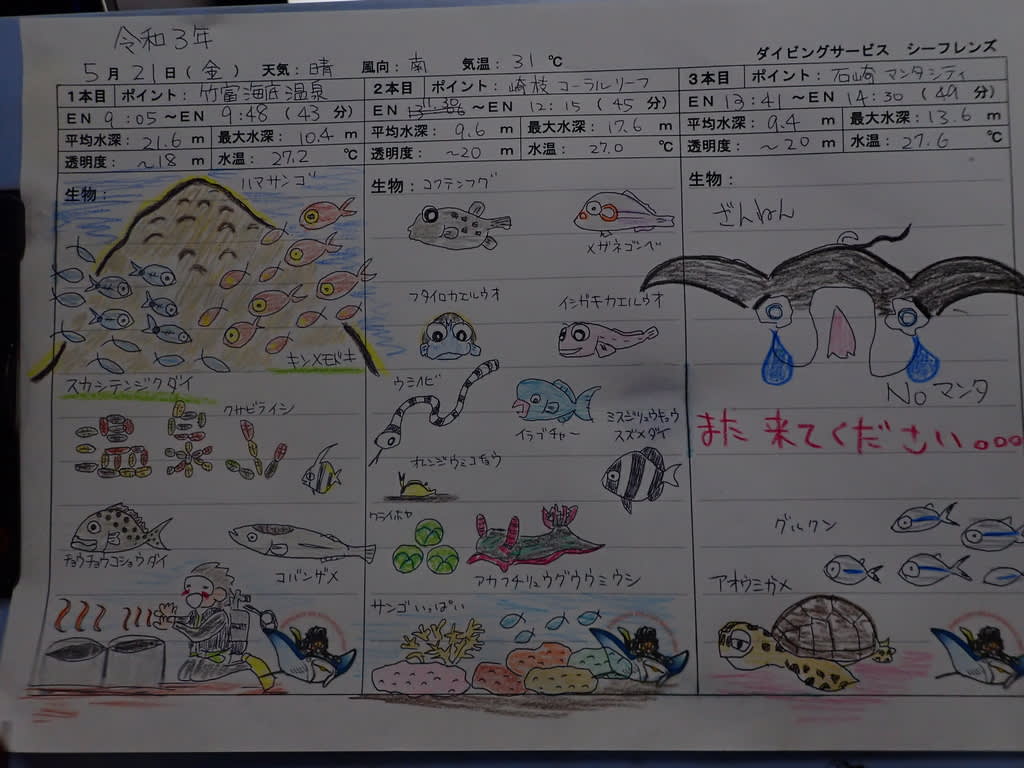 令和3年
5月21日(金) 天気:晴 風向:南 気温:31℃
ダイビングサービス シーフレンズ
1本目 ポイント:竹富海底温泉
EN 9:05～EN 9:48(43分)
平均水深:21.6m 最大水深:10.4m
透明度:～18m 水温:27.2℃
生物:
ハマサンゴ
キンメモドキ
スカシテンジクダイ
クサビライシ
チョウチョウコショウダイ
コバンザメ
2本目 ポイント:崎枝コーラルリーフ
EN 11:30～EN 12:15(45分)
平均水深:9.6m 最大水深:17.6m
透明度:～20m 水温:27.0℃
生物:コクテンフグ
メガネゴンベ
フタイロカエルウオ
イシガキカエルウオ
ウミヘビ
イラブチャー
ミスジリュウキュウ
スズメダイ
オレンジウミコチョウ
ワライボヤ
アカフチリュウグウウミウシ
サンゴいっぱい
3本目 ポイント:石崎マンタシティ
EN 13:41～EN 14:30(49分)
平均水深:9.4m 最大水深:13.6m
透明度:～20m 水温:27.6℃
生物:
ざんねん
Noマンタ
また来てください。。。
グルクン
アオウミガメ